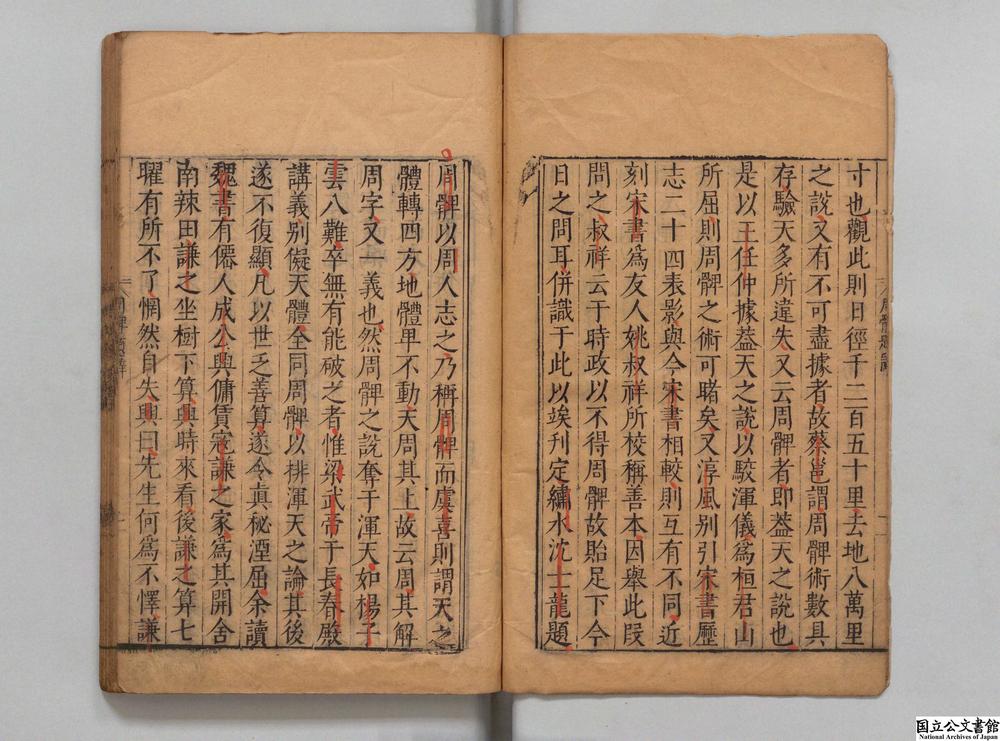 寸也觀此則日徑千二百五十里去地八萬里
之說又有不可盡據者故蔡邕謂周髀術數具
存驗天多所違失又云周髀者即葢天之說也
是以王任仲據葢天之說以駮渾儀爲桓君山
所屈則周髀之術可睹矣又淳風别引宋書歷
志二十四表影與今宋書相較則互有不同近
刻宋書爲友人姚叔祥所校稱善本因舉此叚
問之叔祥云于時政以不得周髀故貽足下今
日之問耳併識于此以竢刊定繡水沈士龍題
周髀以周人志之乃稱周髀而虞喜則謂天之
體轉四方地體卑不動天周其上故云周其解
周字又一義也然周髀之說奪于渾天如楊子
雲八難卒無有能破之者惟梁武帝于長春殿
講義别儗天體全同周髀以排渾天之論其後
遂不復顯凡以世乏善算遂令眞秘湮屈余讀
魏書有僊人成公興傭賃宼謙之家爲其開舍
南辣田謙之坐樹下算興時來看後謙之算七
曜有所不了惘然自失興曰先生何爲不懌謙
国立公文書館
National Archives of Japan